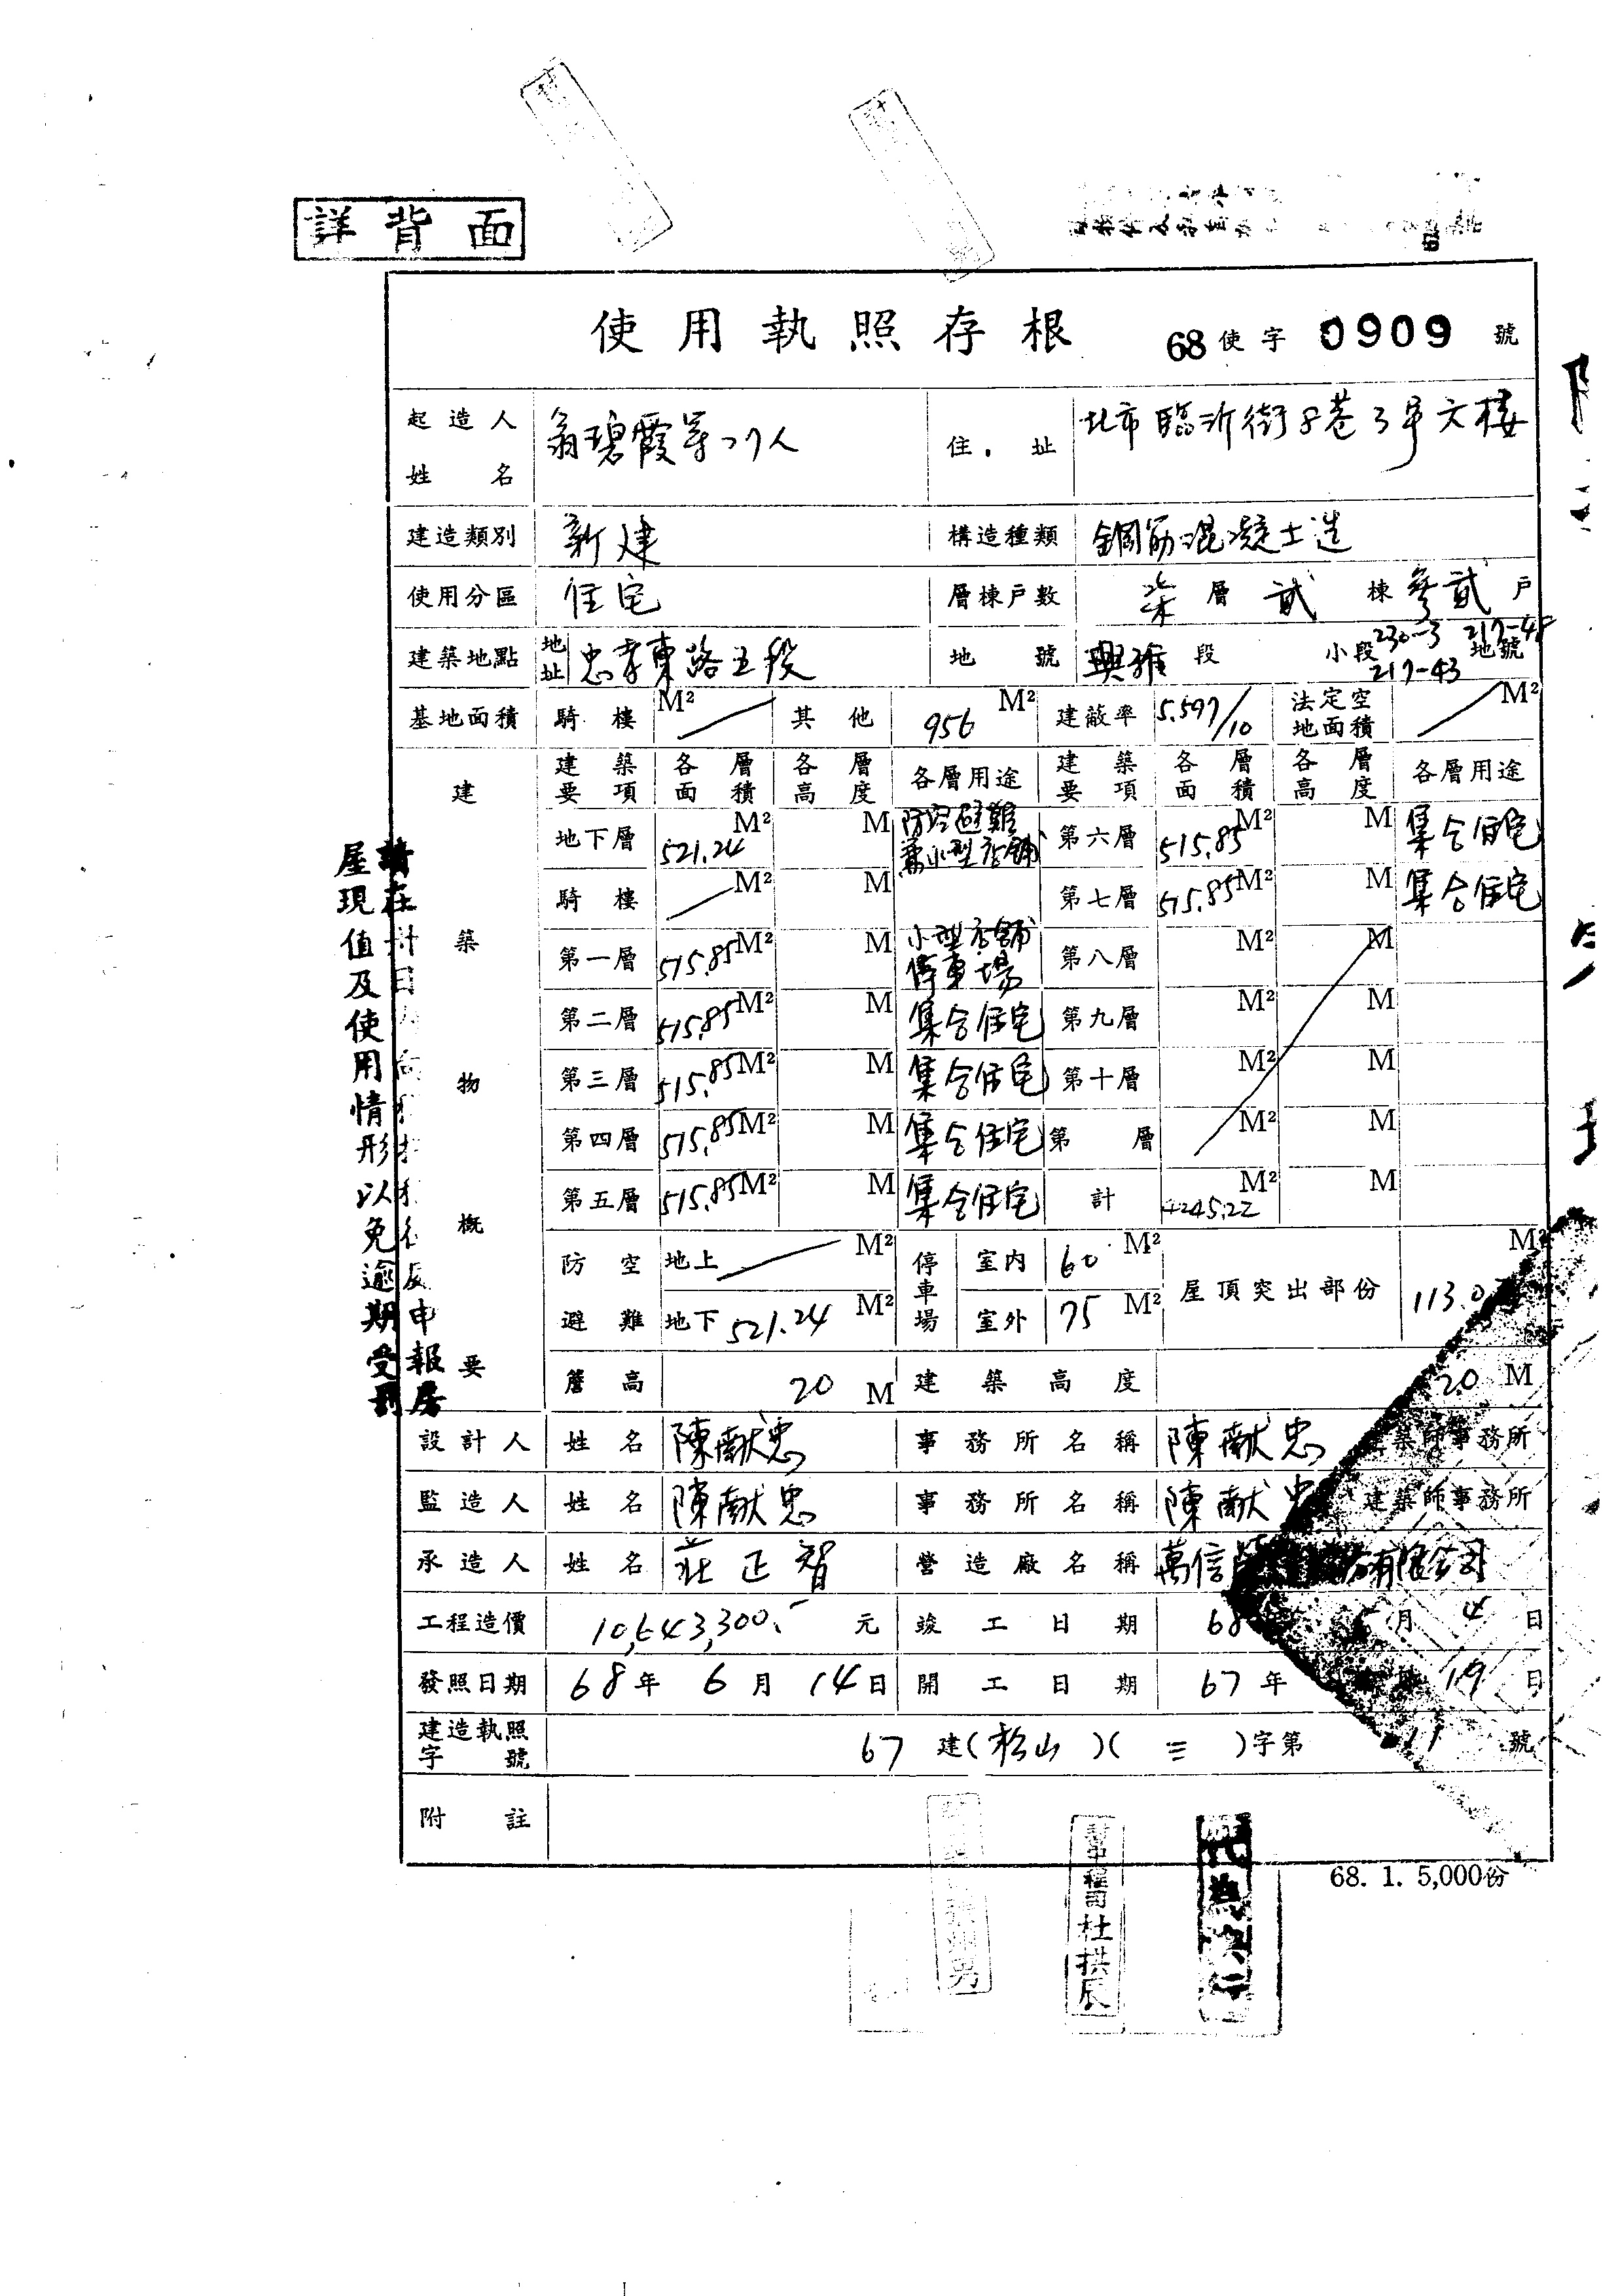 詳背面
使用執照存根 68使字 0909 號
起造人姓名 翁碧霞等27人 住址 北市臨沂街8巷3号六楼
建造類別 新建 構造種類 鋼筋混凝土造
使用分區 住宅 層棟戶數 柒層 貳棟 參貳戶
建築地點 地址 忠孝東路五段 地號 興雅段 小段 230-3 217-48 217-43 地號
基地面積 騎樓 M² 其他 956 M² 建蔽率 5.597/10 法定空地面積 M²
建築物概要
建築要項 各層面積 各層高度 各層用途 建築要項 各層面積 各層高度 各層用途
地下層 521.24 M² M 防空避難兼小型店舖 第六層 515.85 M² M 集合住宅
騎樓 M² M 第七層 515.85 M² M 集合住宅
第一層 515.85 M² M 小型店舖停車場 第八層 M² M
第二層 515.85 M² M 集合住宅 第九層 M² M
第三層 515.85 M² M 集合住宅 第十層 M² M
第四層 515.85 M² M 集合住宅 第 層 M² M
第五層 515.85 M² M 集合住宅 計 4245.22 M² M
防空避難 地上 M² 停車場 室內 60 M² 屋頂突出部份 113.0 M²
地下 521.24 M² 室外 75 M²
簷高 20 M 建築高度 20 M
設計人 姓名 陳献忠 事務所名稱 陳献忠 建築師事務所
監造人 姓名 陳献忠 事務所名稱 陳献忠 建築師事務所
承造人 姓名 莊正智 營造廠名稱 萬信 有限公司
工程造價 10,643,300.- 元 竣工日期 68 月 4 日
發照日期 68年 6月 14日 開工日期 67年 19 日
建造執照字號 67 建(松山)(三)字第 號
附註
68. 1. 5,000份
屋現值及使用情形以免逾期受罰
申報房
杜拱辰